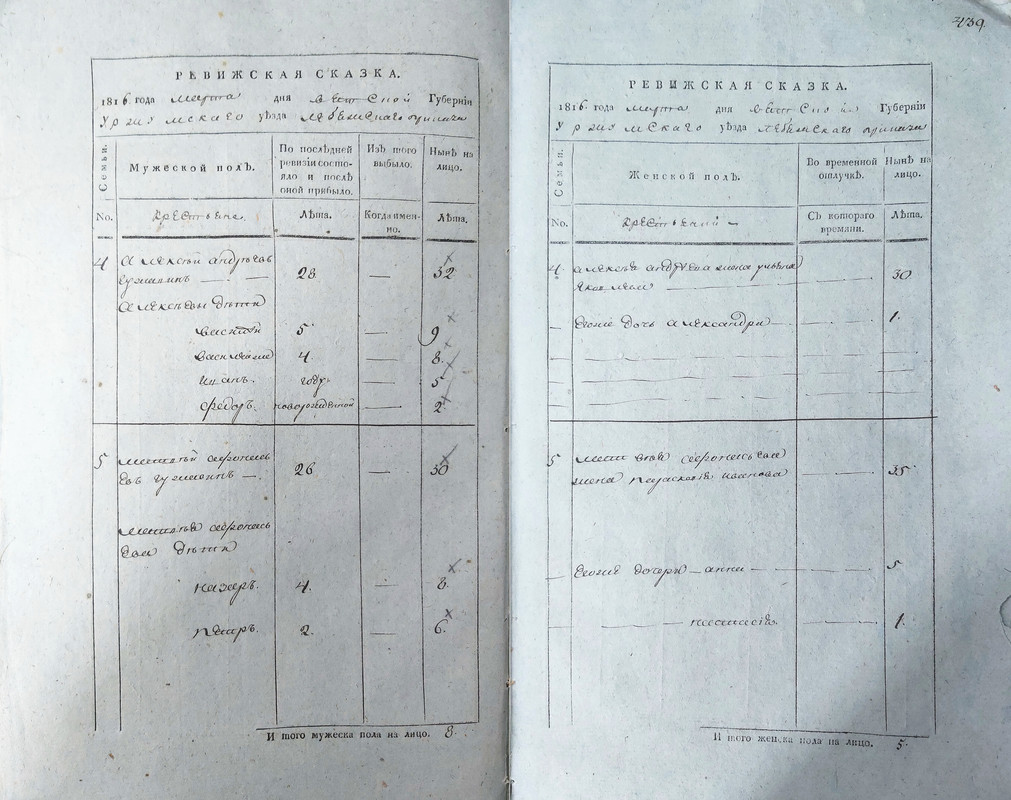 439
РЕВИЖСКАЯ СКАЗКА.
1816. года марта дня Вятской Губерніи
Уржумскаго уѣзда
Семьи.
Мужеской полъ.
По послѣдней ревизіи состояло и послѣ оной прибыло.
Изъ того выбыло.
Нынѣ на лицо.
No.
Крестьяне
Лѣта.
Когда именно.
Лѣта.
4 Алексѣй Андрѣевъ 28 — 32
Алексѣевы дѣти
Василей 5 — 9
4 — 8
Иванъ. году — 5
Федоръ. новорожденной — 2
5 26 — 30
дѣти
Назаръ. 4. — 8.
Петръ. 2. — 6.
И того мужеска пола на лицо. 8.
РЕВИЖСКАЯ СКАЗКА.
1816. года марта дня Вятской Губерніи
Уржумскаго уѣзда
Семьи.
Женской полъ.
Во временной отлучкѣ.
Нынѣ на лицо.
No.
Съ котораго времяни.
Лѣта.
4. Алексѣя Андрѣева жена 30
дочь Александра 1.
5
жена Парасковья Иванова 35
дочери Анна 5
Настасья 1.
И того женска пола на лицо. 5.